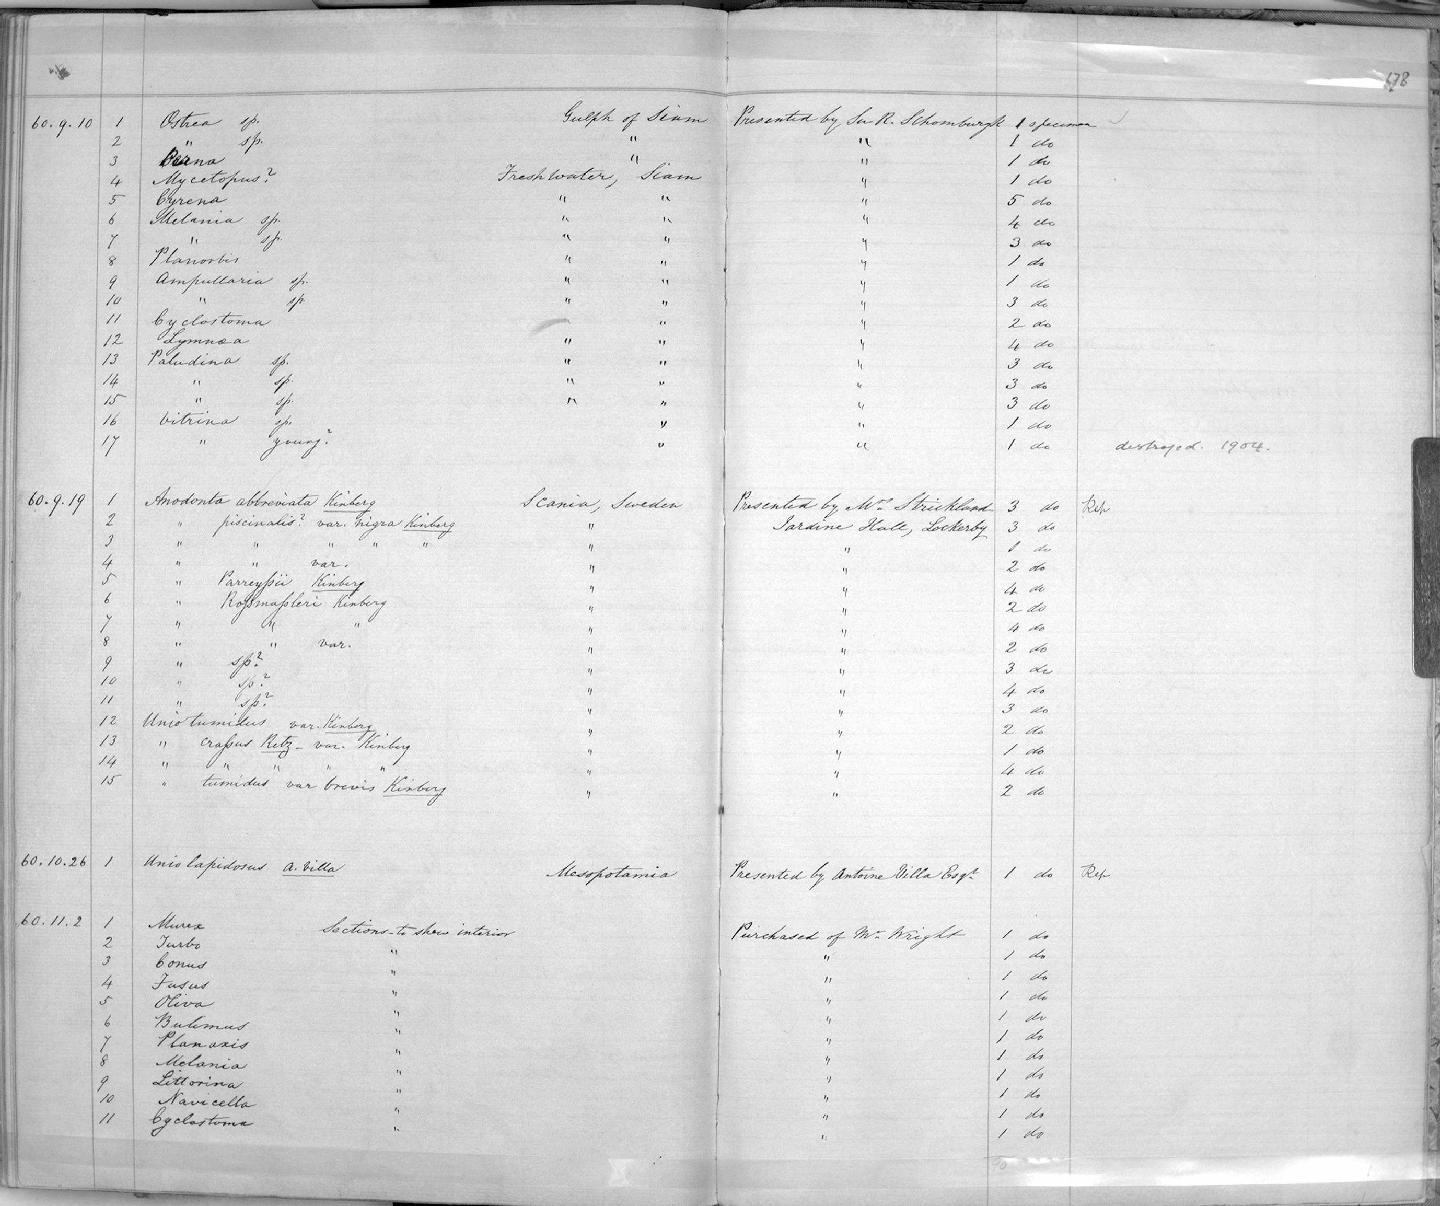 178
60.9.10 1 Ostrea sp. Gulph of Siam Presented by Sir R. Schomburgk 1 specimen
2 " sp. " " 1 do
3 " " 1 do
4 Mycetopus? Freshwater, Siam " 1 do
5 Cyrena " " " 5 do
6 Melania sp. " " " 4 do
7 " sp. " " " 3 do
8 Planorbis " " " 1 do
9 Ampullaria sp. " " " 1 do
10 " sp. " " " 3 do
11 Cyclostoma " " 2 do
12 Lymnæa " " " 4 do
13 Paludina sp. " " " 3 do
14 " sp. " " " 3 do
15 " sp. " " " 3 do
16 Vitrina sp. " " 1 do
17 " young? " " 1 do destroyed. 1904.
60.9.19 1 Anodonta abbreviata Kinberg Scania, Sweden Presented by Mrs Strickland 3 do Rep
2 " piscinalis? var. nigra Kinberg " Jardine Hall, Lockerby 3 do
3 " " " " " " " 1 do
4 " " var. " " 2 do
5 " Parreyſsii Kinberg " " 4 do
6 " Roſsmaſsleri Kinberg " " 2 do
7 " " " " " 4 do
8 " " var. " " 2 do
9 " sp? " " 3 do
10 " sp? " " 4 do
11 " sp? " " 3 do
12 Unio tumidus var. Kinberg " " 2 do
13 " craſsus Retz - var. Kinberg " " 1 do
14 " " " " " " " 4 do
15 " tumidus var brevis Kinberg " " 2 do
60.10.26 1 Unio lapidosus A. Villa Mesopotamia Presented by Antoine Villa Esqr 1 do Rep
60.11.2 1 Murex Sections - to shew interior Purchased of Mr Wright 1 do
2 Turbo " " 1 do
3 Conus " " 1 do
4 Fusus " " 1 do
5 Oliva " " 1 do
6 Bulimus " " 1 do
7 Planaxis " " 1 do
8 Melania " " 1 do
9 Littorina " " 1 do
10 Navicella " " 1 do
11 Cyclostoma " " 1 do
90